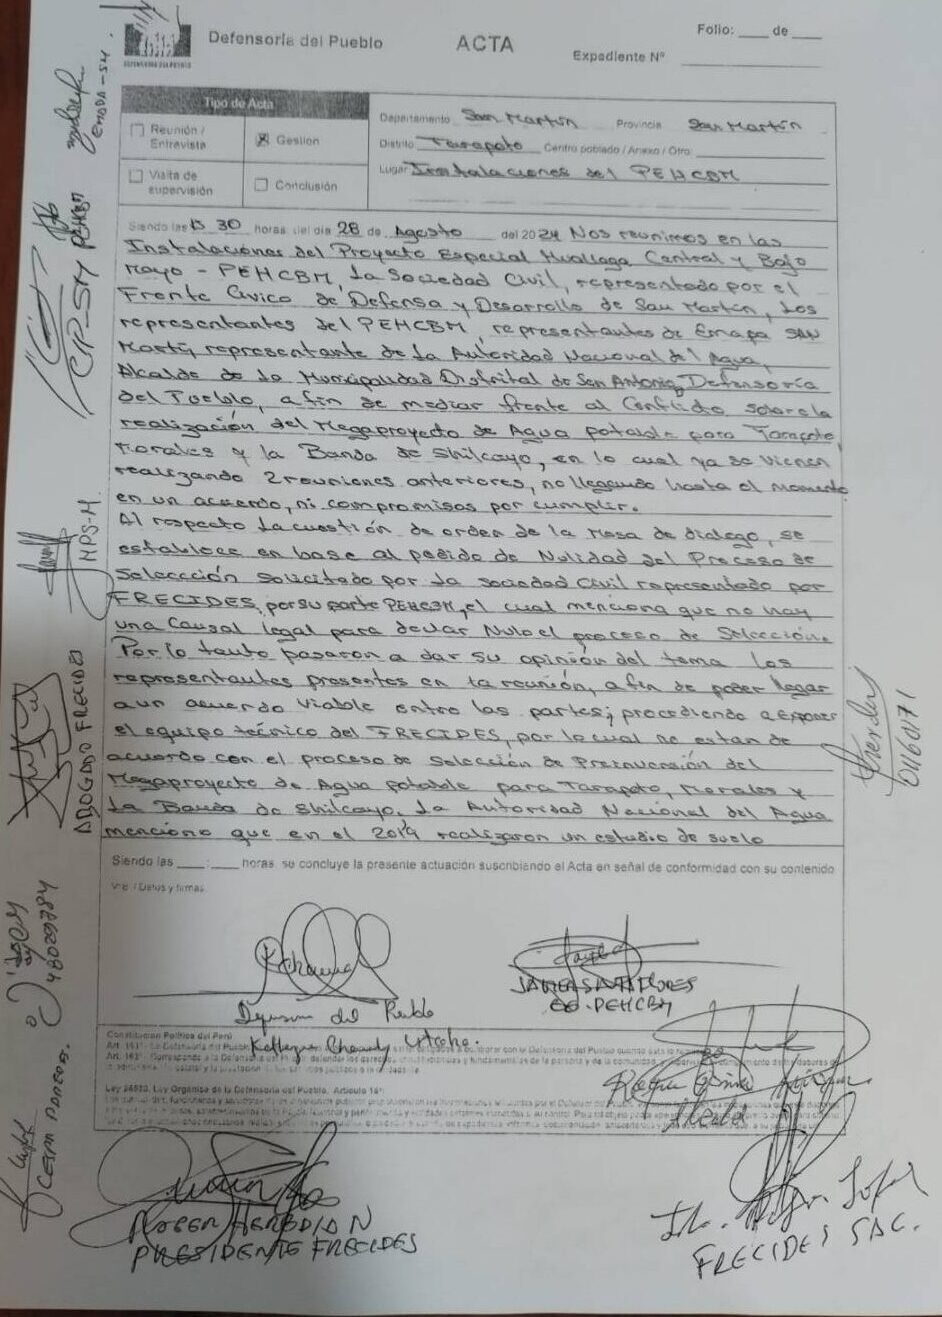 Defensoría del Pueblo
ACTA
Folio: ____ de ____
Expediente Nº
DEFENSORÍA DEL PUEBLO
Tipo de Acta
Reunión / Entrevista
Gestión
Visita de supervisión
Conclusión
Departamento San Martín Provincia San Martín
Distrito Tarapoto Centro poblado / Anexo / Otro:
Lugar Instalaciones del PEHCBM
Siendo las 15 30 horas del día 28 de Agosto del 2024 Nos reunimos en las
Instalaciones del Proyecto Especial Huallaga Central y Bajo
Mayo - PEHCBM, La Sociedad Civil, representado por el
Frente Civico de Defensa y Desarrollo de San Martín, Los
representantes del PEHCBM, representantes de Emapa SAN
Martín, representante de La Autoridad Nacional del Agua,
Alcalde de La Municipalidad Distrital de San Antonio, Defensoría
del Pueblo, a fin de mediar frente al Conflicto sobre la
realización del Megaproyecto de Agua potable para Tarapoto,
Morales y la Banda de Shilcayo, en lo cual ya se vienen
realizando 2 reuniones anteriores, no llegando hasta el momento
en un acuerdo, ni compromisos por cumplir.
Al respecto La cuestión de orden de la Mesa de dialogo, se
establece en base al pedido de Nulidad del Proceso de
Selección solicitado por La Sociedad Civil representado por
FRECIDES, por su parte PEHCBM, el cual menciona que no hay
una Causal legal para declar Nulo el proceso de Selección.
Por lo tanto pasaron a dar su opinión del tema los
representantes presentes en la reunión, a fin de poder llegar
a un acuerdo viable entre las partes; procediendo a exponer
el equipo técnico del FRECIDES, por lo cual no estan de
acuerdo con el proceso de Selección de Preinversión del
Megaproyecto de Agua potable para Tarapoto, Morales y
La Banda de Shilcayo, La Autoridad Nacional del Agua
menciono que en el 2019 realizaron un estudio de suelo
Siendo las ____:____ horas, se concluye la presente actuación suscribiendo el Acta en señal de conformidad con su contenido
Vºb / Datos y firmas
del Pueblo
GG-PEHCBM
Constitución Política del Perú
Ley 26520, Ley Orgánica de la Defensoría del Pueblo, Artículo 16º
ROGER HERBDIAN
PRESIDENTE FRECIDES
FRECIDES SAC.
EMAPA-SM
PEHCBM
CIP-SM
MPS-M.
ABOGADO FRECIDES
48029784
01160171